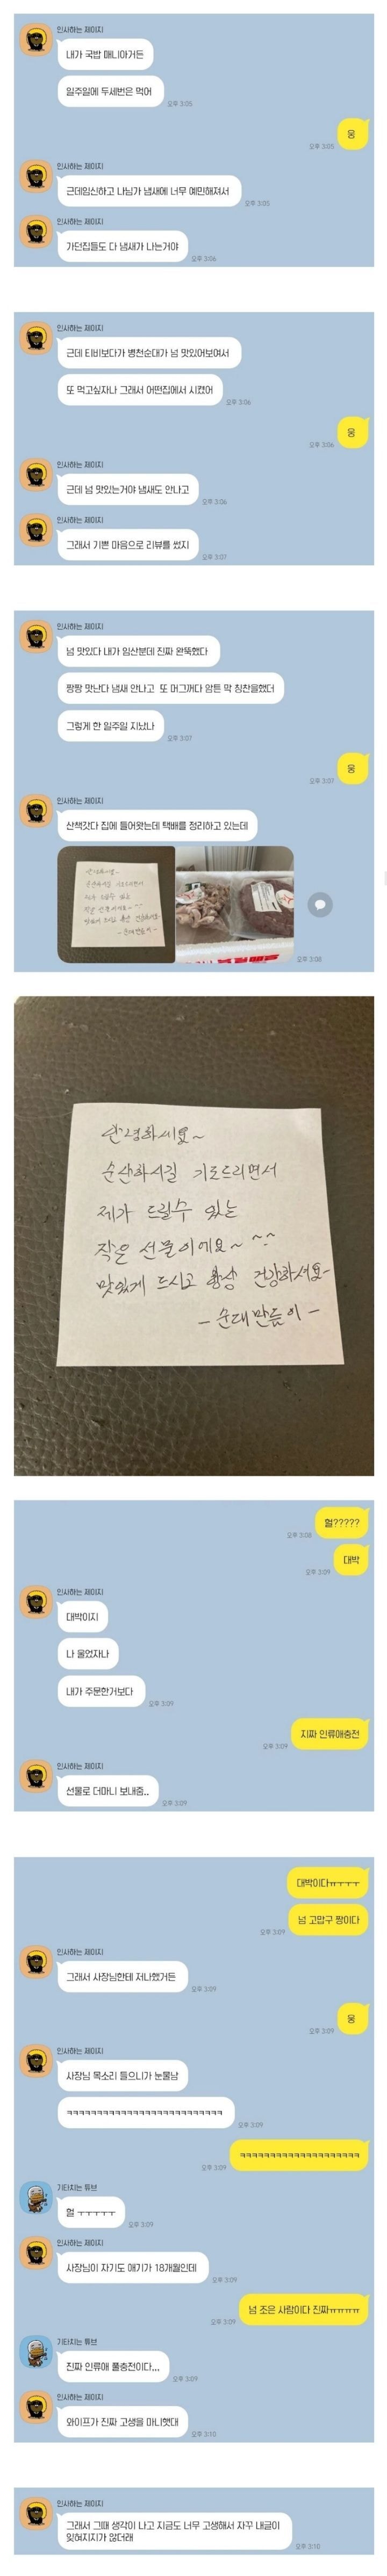 인사하는 제이지
내가 국밥 매니아거든
일주일에 두세번은 먹어
오후 3:05
웅
오후 3:05
인사하는 제이지
근데임신하고 나님가 냄새에 너무 예민해져서
오후 3:05
가던집들도 다 냄새가 나는거야
오후 3:06
인사하는 제이지
근데 티비보다가 병천순대가 넘 맛있어보여서
또 먹고싶자나 그래서 어떤집에서 시켰어
오후 3:06
웅
오후 3:06
인사하는 제이지
근데 넘 맛있는거야 냄새도 안나고
오후 3:06
인사하는 제이지
그래서 기쁜 마음으로 리뷰를 썼지
오후 3:07
인사하는 제이지
넘 맛있다 내가 임산분데 진짜 완뚝했다
짱짱 맛난다 냄새 안나고 또 머그꺼다 암튼 막 칭찬을했더
그렇게 한 일주일 지났나
오후 3:07
웅
오후 3:07
인사하는 제이지
산책갓다 집에 들어왓는데 택배를 정리하고 있는데
오후 3:08
안녕하세요~
순산하시길 기도드리면서
제가 드릴수 있는
작은 선물이에요~ ^^
맛있게 드시고 항상 건강하셔요~
- 순대만듦이 -
헐?????
오후 3:08
대박
오후 3:09
인사하는 제이지
대박이지
나 울었자나
내가 주문한거보다
오후 3:09
지짜 인류애충전
오후 3:09
인사하는 제이지
선물로 더마니 보내줌..
오후 3:09
대박이다ㅠㅜㅜㅜ
넘 고맙구 짱이다
오후 3:09
인사하는 제이지
그래서 사장님한테 저나했거든
오후 3:09
웅
오후 3:09
인사하는 제이지
사장님 목소리 들으니가 눈물남
ㅋㅋㅋㅋㅋㅋㅋㅋㅋㅋㅋㅋㅋㅋㅋㅋㅋㅋㅋㅋㅋㅋㅋㅋㅋㅋ
오후 3:09
ㅋㅋㅋㅋㅋㅋㅋㅋㅋㅋㅋㅋㅋㅋㅋㅋㅋㅋㅋㅋ
오후 3:09
기타치는 튜브
헐 ㅜㅜㅜㅜㅜ
오후 3:09
인사하는 제이지
사장님이 자기도 애기가 18개월인데
오후 3:09
넘 조은 사람이다 진짜ㅠㅠㅠㅠ
오후 3:09
기타치는 튜브
진짜 인류애 풀충전이다...
오후 3:09
인사하는 제이지
와이프가 진짜 고생을 마니햇대
오후 3:10
인사하는 제이지
그래서 그때 생각이 나고 지금도 너무 고생해서 자꾸 내글이
잊혀지지가 않더래
오후 3:10